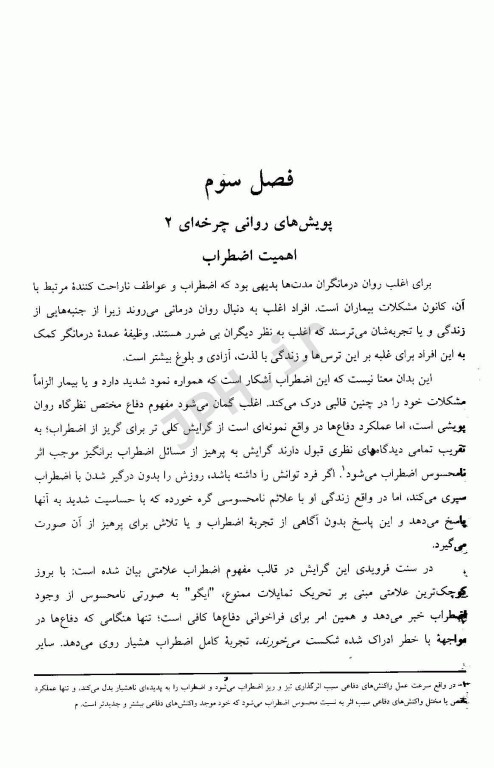 فصل سوم
پویش‌های روانی چرخه‌ای ۲
اهمیت اضطراب
برای اغلب روان درمانگران مدت‌ها بدیهی بود که اضطراب و عواطف ناراحت کنندهٔ مرتبط با
آن، کانون مشکلات بیماران است. افراد اغلب به دنبال روان درمانی می‌روند زیرا از جنبه‌هایی از
زندگی و یا تجربه‌شان می‌ترسند که اغلب به نظر دیگران بی ضرر هستند. وظیفهٔ عمدهٔ درمانگر کمک
به این افراد برای غلبه بر این ترس‌ها و زندگی با لذت، آزادی و بلوغ بیشتر است.
این بدان معنا نیست که این اضطراب آشکار است که همواره نمود شدید دارد و یا بیمار الزاماً
مشکلات خود را در چنین قالبی درک می‌کند. اغلب گمان می‌شود مفهوم دفاع مختص نظرگاه روان
پویشی است، اما عملکرد دفاع‌ها در واقع نمونه‌ای است از گرایش کلی تر برای گریز از اضطراب؛ به
تقریب تمامی دیدگاه‌های نظری قبول دارند گرایش به پرهیز از مسائل اضطراب برانگیز موجب اثر
نامحسوس اضطراب می‌شود۱. اگر فرد توانش را داشته باشد، روزش را بدون درگیر شدن با اضطراب
سپری می‌کند، اما در واقع زندگی او با علائم نامحسوسی گره خورده که با حساسیت شدید به آنها
پاسخ می‌دهد و این پاسخ بدون آگاهی از تجربهٔ اضطراب و یا تلاش برای پرهیز از آن صورت
می‌گیرد.
در سنت فرویدی این گرایش در قالب مفهوم اضطراب علامتی بیان شده است: با بروز
کوچک‌ترین علامتی مبنی بر تحریک تمایلات ممنوع، "ایگو" به صورتی نامحسوس از وجود
اضطراب خبر می‌دهد و همین امر برای فراخوانی دفاع‌ها کافی است؛ تنها هنگامی که دفاع‌ها در
مواجهة با خطر ادراک شده شکست می‌خورند، تجربهٔ کامل اضطراب هشیار روی می‌دهد. سایر
۱- در واقع سرعت عمل واکنش‌های دفاعی سبب اثرگذاری تیز و ریز اضطراب می‌شود و اضطراب را به پدیده‌ای ناهشیار بدل می‌کند، و تنها عملکرد
یا مختل واکنش‌های دفاعی سبب اثر به نسبت محسوس اضطراب می‌شود که خود موجد واکنش‌های دفاعی بیشتر و جدیدتر است. م
JPH.ir